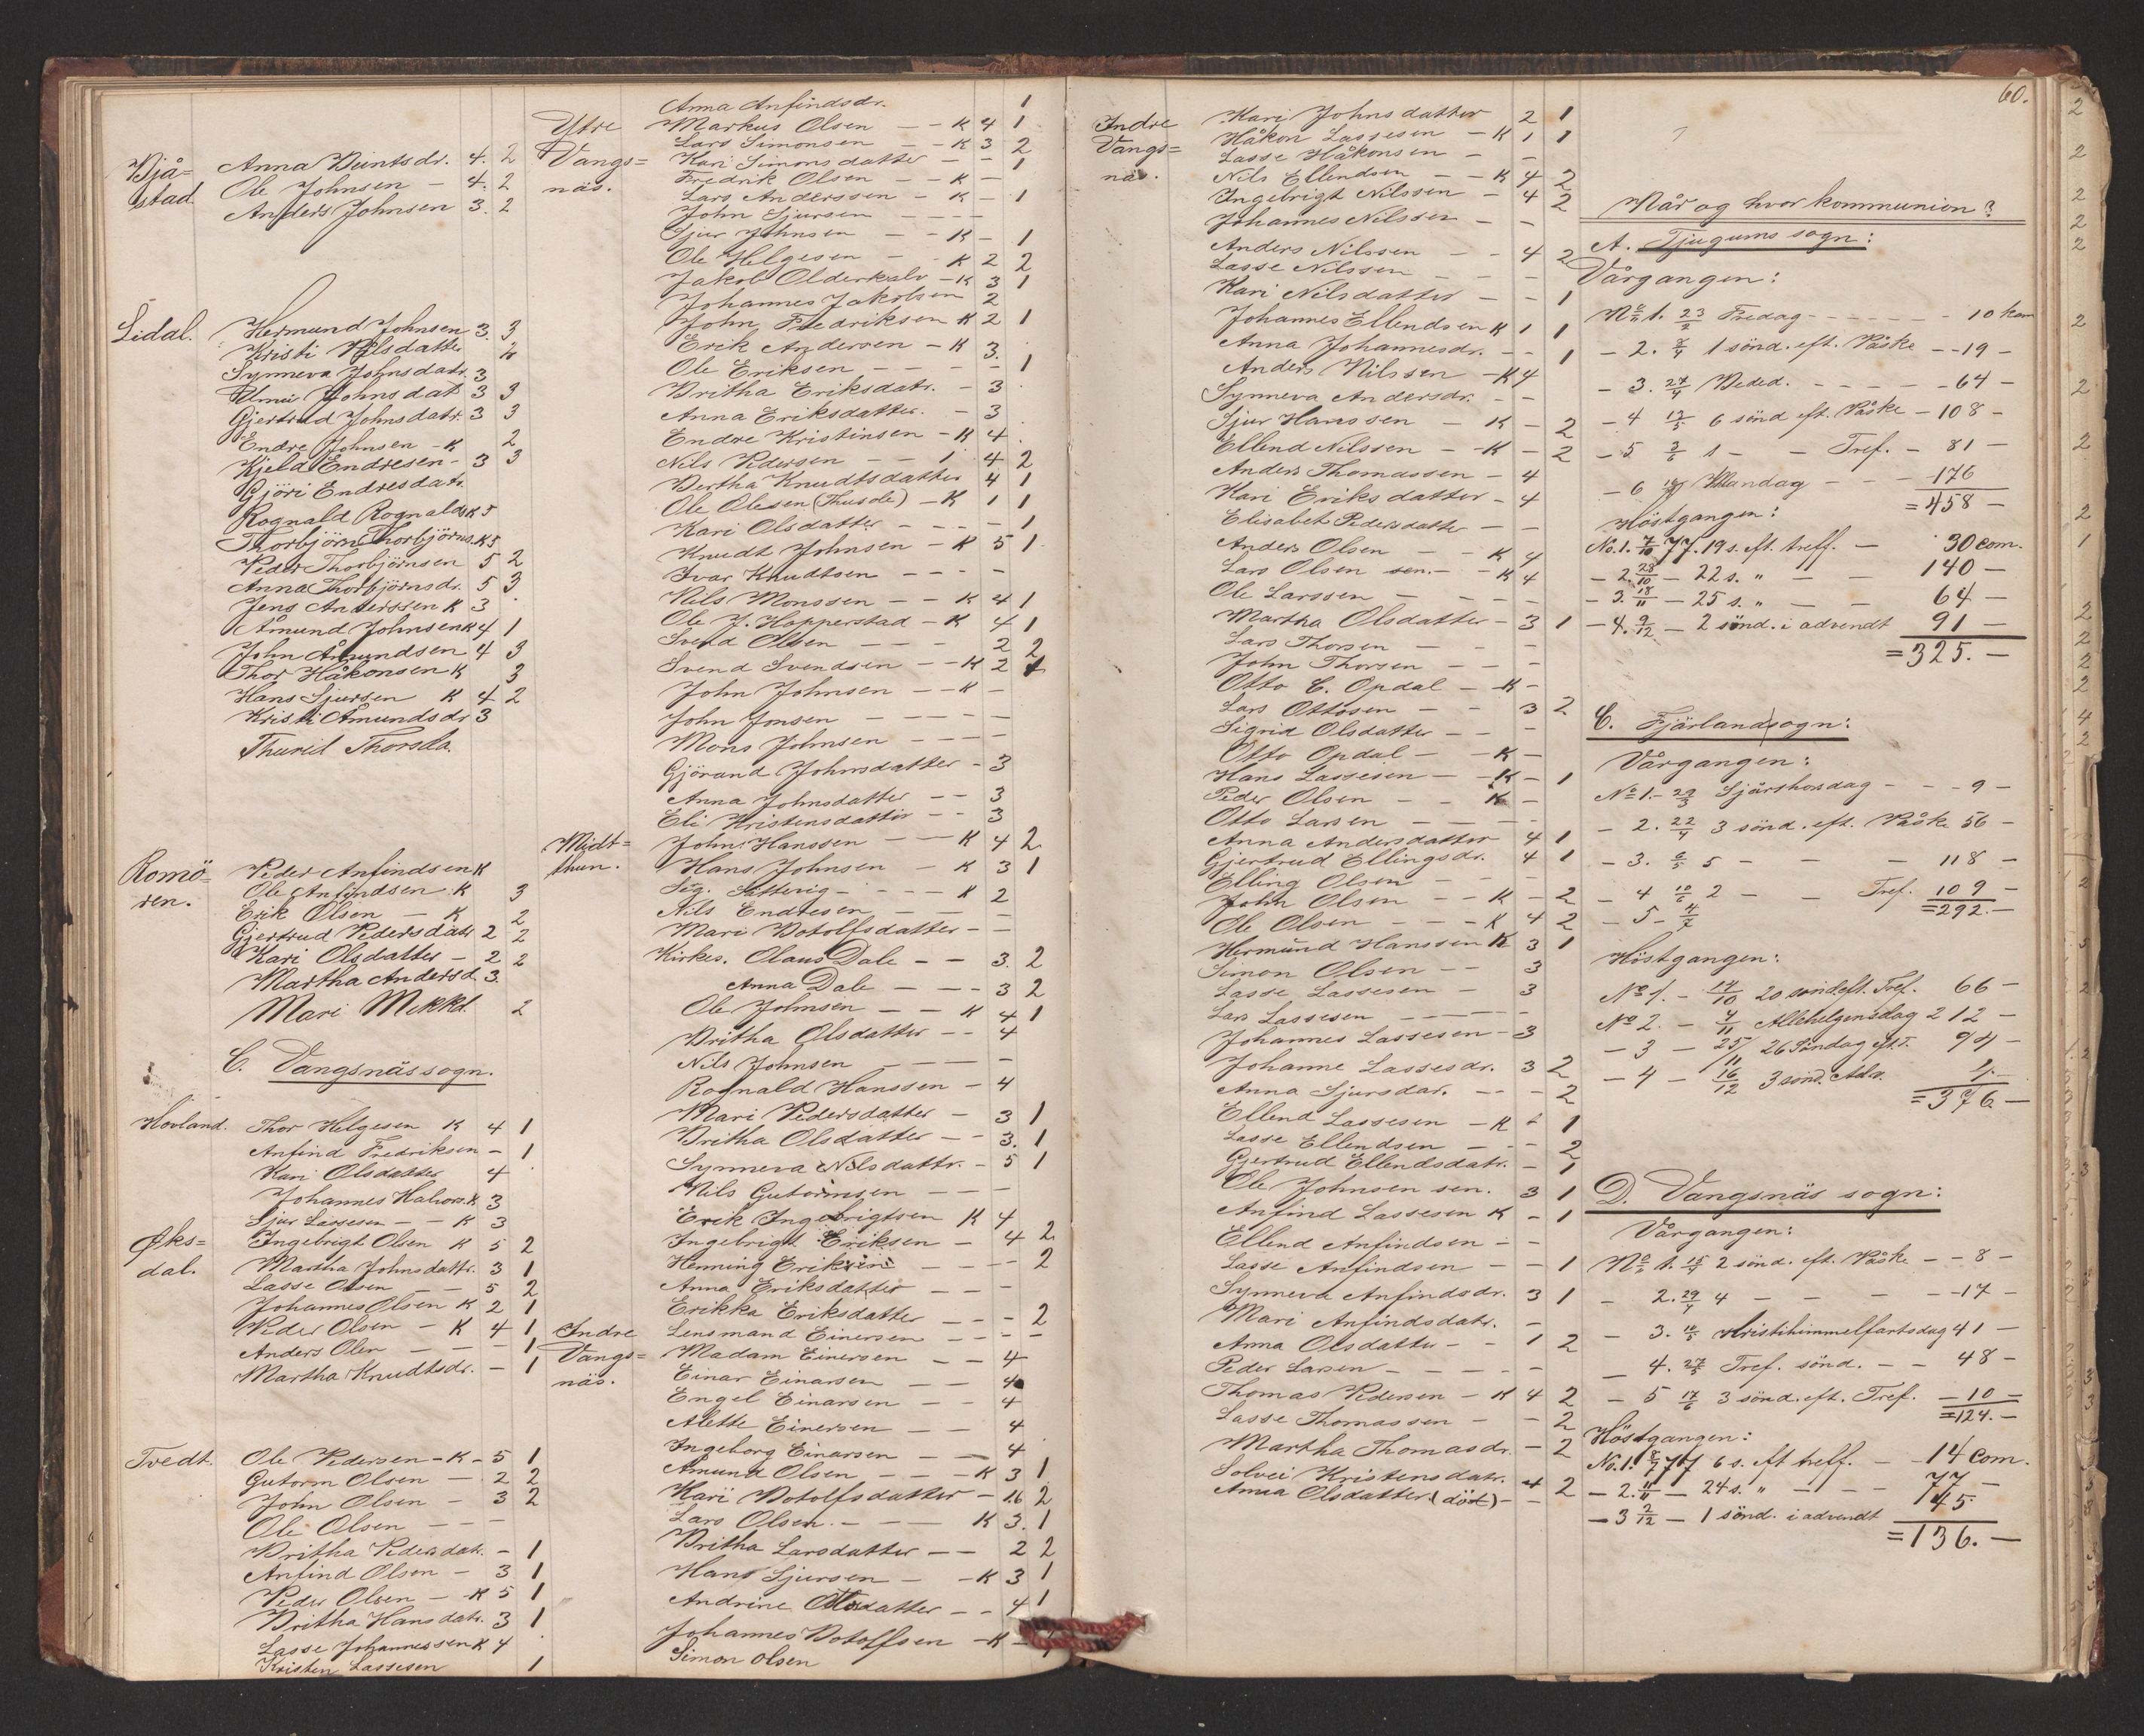 Bjå=
stad.
Anna Berntsdr. 4. 2
Ole Johnsen - 4. 2
Anders Johnsen 3. 2
Lidal.
Hermund Johnsen 3. 3
Kristi Nilsdatter
Synneva Johnsdatr. 3
Johnsdat 3 3
Gjertrud Johnsdatr. 3 3
Endre Johnsen - K 2
Kjeld Endresen - 3 3
Gjöri Endresdatr.
Rognald Rognalds K 5
Thorbjörn Thorbjörns. K 5
Peder Thorbjörnsen 5 2
Anna Thorbjörnsdr. 5 3
Jens Anderssen K 3
Åmund Johnsen K 4 1
John Åmundsen 4 3
Thor Håkonsen K 3
Hans Sjursen K 4 2
Kristi Åmundsdr 3
Thurid Thorsda.
Romö=
ren.
Peder Anfindsen K
Ole Anfindsen K 3
Erik Olsen - K 2
Gjertrud Pedersdatr 2 2
Kari Olsdatter - 2 2
Martha Andersd. 3.
Mari Mikkd. 2
C. Vangsnäs sogn.
Hovland.
Thor Helgesen K 4 1
Anfind Fredriksen - 1
Kari Olsdatter 4
Johannes Halvors. K 3
Sjur Lassesen - - K 3
Øks=
dal.
Ingebrigt Olsen K 5 2
Martha Johnsdattr. 3 1
Lasse Olsen - - 5 2
Johannes Olsen K 2 1
Peder Olsen - K 4 1
Anders Olsen - - - 1
Martha Knudtsdr. - 1
Tvedt.
Ole Pedersen - K - 5 1
Gutorm Olsen - 2 2
John Olsen - 3 2
Ole Olsen - - -
Britha Pedersdatr. - 1
Anfind Olsen - 3 1
Peder Olsen - K 5 1
Britha Hansdatr. 3 1
Lasse Johannessen K 4
Kristen Lassesen 1
Anna Anfindsdr. 1
Ytre
Vangs=
näs.
Markus Olsen - - K 4 1
Lars Simonsen - - K 3 2
Kari Simonsdatter - - 1
Fredrik Olsen - - K -
Lars Anderssen - K - 1
John Sjursen - - - -
Sjur Johnsen - - K - 1
Ole Helgesen - - K 2 2
Jakob Olderkalv - K 3 1
Johannes Jakobsen 2
John Fredriksen K 2 1
Erik Andersen - K 3.
Ole Eriksen - - - - 1
Britha Eriksdatr. - 3
Anna Eriksdatter. - 3
Endre Kristinsen - K 4
Nils Pedersen - - 4 2
Bertha Knudtsdatter 4 1
Ole Olesen (Husde) - K 1 1
Kari Olsdatter - - - - 1
Knudt Johnsen - K 5 1
Ivar Knudtsen - - - -
Nils Monssen - - K 4 1
Ole J. Hopperstad - K 4 1
Svend Olsen - - - 2 2
Svend Svendsen - - K 2 1
John Johnsen - - K -
John Jonsen - - - - -
Mons Johnsen - - - -
Gjörand Johnsdatter - 3
Anna Johnsdatter - - 3
Eli Kristensdatter - - 3
Midt=
thun.
Johns Hanssen - - K 4 2
Hans Johnsen - K 3 1
Nils Endresen - - -
Mari Botolfsdatter - -
Kirkes. Olaus Dale - - 3. 2
Anna Dale - - - 3 2
Ole Johnsen - - K 4 1
Britha Olsdatter - - 4
Nils Johnsen - - - -
Rognald Hanssen - 4
Mari Pedersdatter - 3 1
Britha Olsdatter - - 3. 1
Synneva Nilsdattr. - 5 1
Nils Gutormsen - - -
Erik Ingebrigtsen K 4
Ingebrigt Eriksen - 4 2
Henning Eriksen - - - - 2
Anna Eriksdatter - - -
Erikka Eriksdatter - - - 2
Indre
Vangs=
näs.
Lensmand Einersen - - - -
Madam Einersen - - 4
Einar Einarsen - - 4
Engel Einarsen - - 4
Alette Einersen - - 4
Ingeborg Einarsen - - 4
Åmund Olsen - - - K 3 1
Kari Botolfsdatter - 1.6 2
Lars Olsen - - - K 3. 1
Britha Larsdatter - - 2 2
Hans Sjursen - - K 3 1
Andrine Olsdatter - - 4 1
Johannes Botolfsen - K -
Simon Olsen
60.
Indre
Vangs=
näs.
Kari Johnsdatter 2 1
Håkon Lassesen - K 1 1
Lasse Håkonsen - -
Nils Ellendsen - - K 4 2
Ingebrigt Nilssen - 4 2
Johannes Nilssen - -
Anders Nilssen - - 4 2
Lasse Nilssen - - -
Kari Nilsdatter - - 1
Johannes Ellendsen K 1 1
Anna Johannesdr. - - 1
Anders Nilssen - K 4
Synneva Andersdr. - -
Sjur Hanssen - K - 2
Ellend Nilssen - - K - 2
Anders Thomassen - 4
Kari Eriksdatter - 4
Elisabet Pedersdatter - -
Anders Olsen - - K 4
Lars Olsen sen. - - K 4
Ole Larssen - - - -
Martha Olsdatter - 3 1
Lars Thorsen - - -
John Thorsen - - -
Otto C. Opdal - K -
Lars Ottosen - - 3 2
Sigrid Olsdatter - - -
Otto Opdal - - K -
Hans Lassesen - - K - 1
Peder Olsen - - K -
Otto Larsen - - - -
Anna Andersdatter 4 1
Gjertrud Ellingsdr. 4 1
Elling Olsen - - -
John Olsen - - K - 2
Ole Olsen - - - K 4 2
Hermund Hanssen K 3 1
Simon Olsen - - 3
Lasse Lassesen - 3
Lars Lassesen - - - - -
Johannes Lassesen - 3
Johanne Lassesdr. 3 2
Anna Sjursdar. - - - 2
Ellend Lassesen - K - 1
Lasse Ellendsen - - - 2
Gjertrud Ellendsdatr. - 1
Ole Johnsen sen. 3 1
Anfind Lassesen K - 1
Ellend Anfindsen - -
Lasse Anfindsen - - 1
Synneva Anfindsdr. 3 1
Mari Anfindsdatr. -
Anna Olsdatter - - 1 2
Peder Larsen - - - -
Thomas Pedersen - K 4 2
Lasse Thomassen - - 2
Martha Thomasdr. - 2
Solvei Kristensdatr. 4 2
Anna Olsdatter (död) - -
Når og hvor kommunion?
A. Tjugums sogn:
Vårgangen:
No 1. 23/2 Fredag - - - - - - 10 kom
- 2. 8/4 1 sönd. eft. Påske - - 19 -
- 3. 27/4 Beded. - - - - - 64 -
- 4 13/5 6 sönd eft. Påske - 108 -
- 5 3/6 1 - - Tref. - 81 -
- 6 Mandag - - - 176
= 458 -
Höstgangen:
No. 1. 7/10 77. 19 s. eft. treff. - 30 com.
- 2. 28/10 - 22 s. " - - 140 -
- 3. 18/11 - 25 s. " - - 64 -
- 4. 9/12 - 2 sönd. i advendt 91 -
= 325. -
C. Fjärlandsogn:
Vårgangen:
No 1. - 29/3 Skjärthorsdag - - - 9 -
- 2. 22/4 3 sönd. eft. Påske 56 -
- 3. 6/5 5 - - - 118 -
- 4 10/6 2 - - Tref. 109 -
= 292. -
- 5 - 4/7
Höstgangen:
No 1. - 14/10 20 sönd. eft. Tref. 66 -
No 2. - 4/11 Allehelgensdag 212 -
- 3 - 25/11 26 Söndag eft. T. 94 -
- 4 - 16/12 3 sönd. Adv. 4. -
= 376. -
D. Vangsnäs sogn:
Vårgangen:
No 1. 15/4 2 sönd. eft. Påske - - 8 -
- 2. 29/4 4 - - - - - 17 -
- 3. 10/5 Kristihimmelfartsdag 41 -
- 4. 27/5 Tref. sönd. - - 48 -
- 5 17/6 3 sönd. eft. Tref. - 10 -
= 124. -
Höstgangen:
No. 1. 8/7 77 6 s. eft treff. - - 14 com.
- 2. 11/11 - 24 s. " - - - 77 -
- 3 2/12 - 1 sönd. i advendt 45.
= 136. -